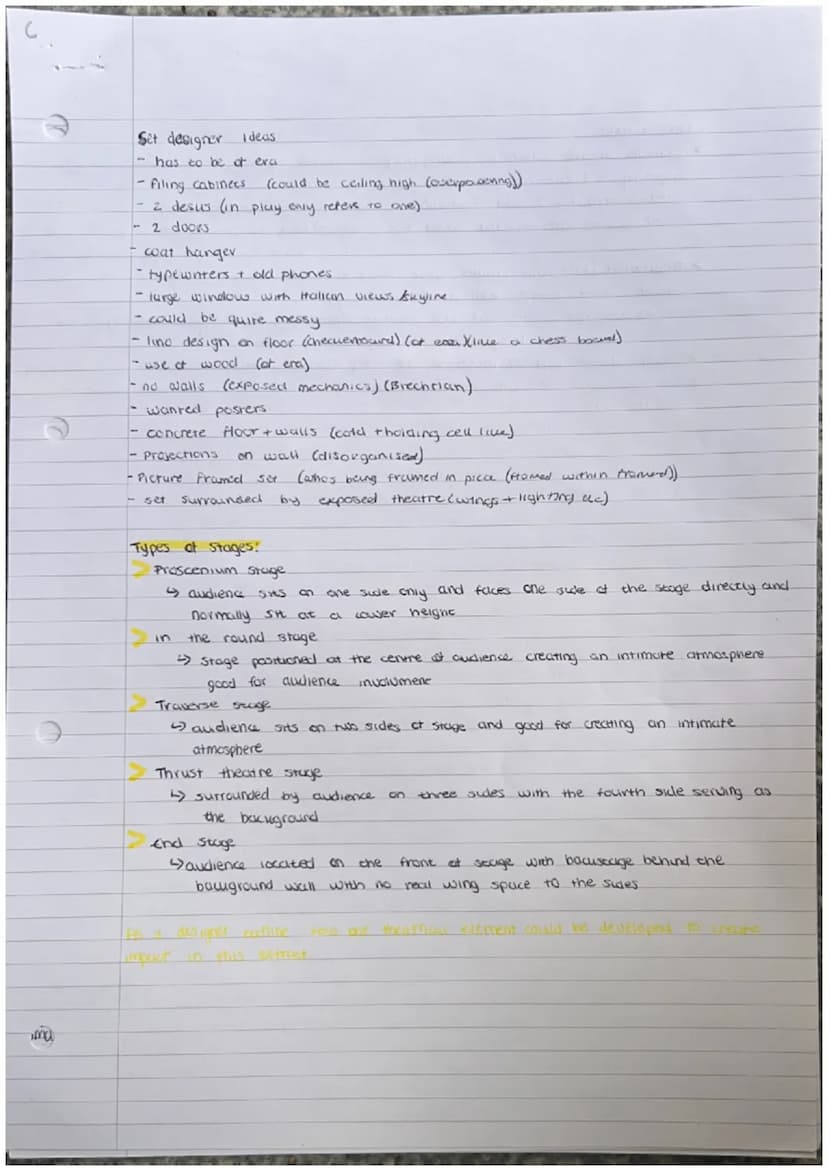 C
Set designer ideas
- has to be of era
- filing cabinets (could be ceiling high (overpowering))
- 2 desks (in play only refers to one)
- 2 doors
- coat hanger
- typewriters + old phones
- large window with Italian views skyline
- could be quite messy
- lino design on floor (checkerboard) (of era) (like a chess board)
- use of wood (of era)
- no walls (exposed mechanics) (Brechtian)
- wanted posters
- concrete floor + walls (cold + holding cell like)
- Projections on wall (disorganised)
- Picture Framed set (whos being framed in piece (framed within framed))
- set surrounded by exposed theatre (wings + lighting etc)
Types of stages:
> Proscenium stage
↳ audience sits on one side only and faces one side of the stage directly and
normally sit at a lower height
> in the round stage
↳ stage positioned at the centre of audience creating an intimate atmosphere
good for audience involvment
> Traverse stage
↳ audience sits on two sides of stage and good for creating an intimate
atmosphere
> Thrust theatre stage
↳ surrounded by audience on three sides with the fourth side serving as
the background
> End stage
↳ audience located on the front of stage with backstage behind the
background wall with no real wing space to the sides
As a designer outline how one theatrical element could be developed to create
impact in this extract